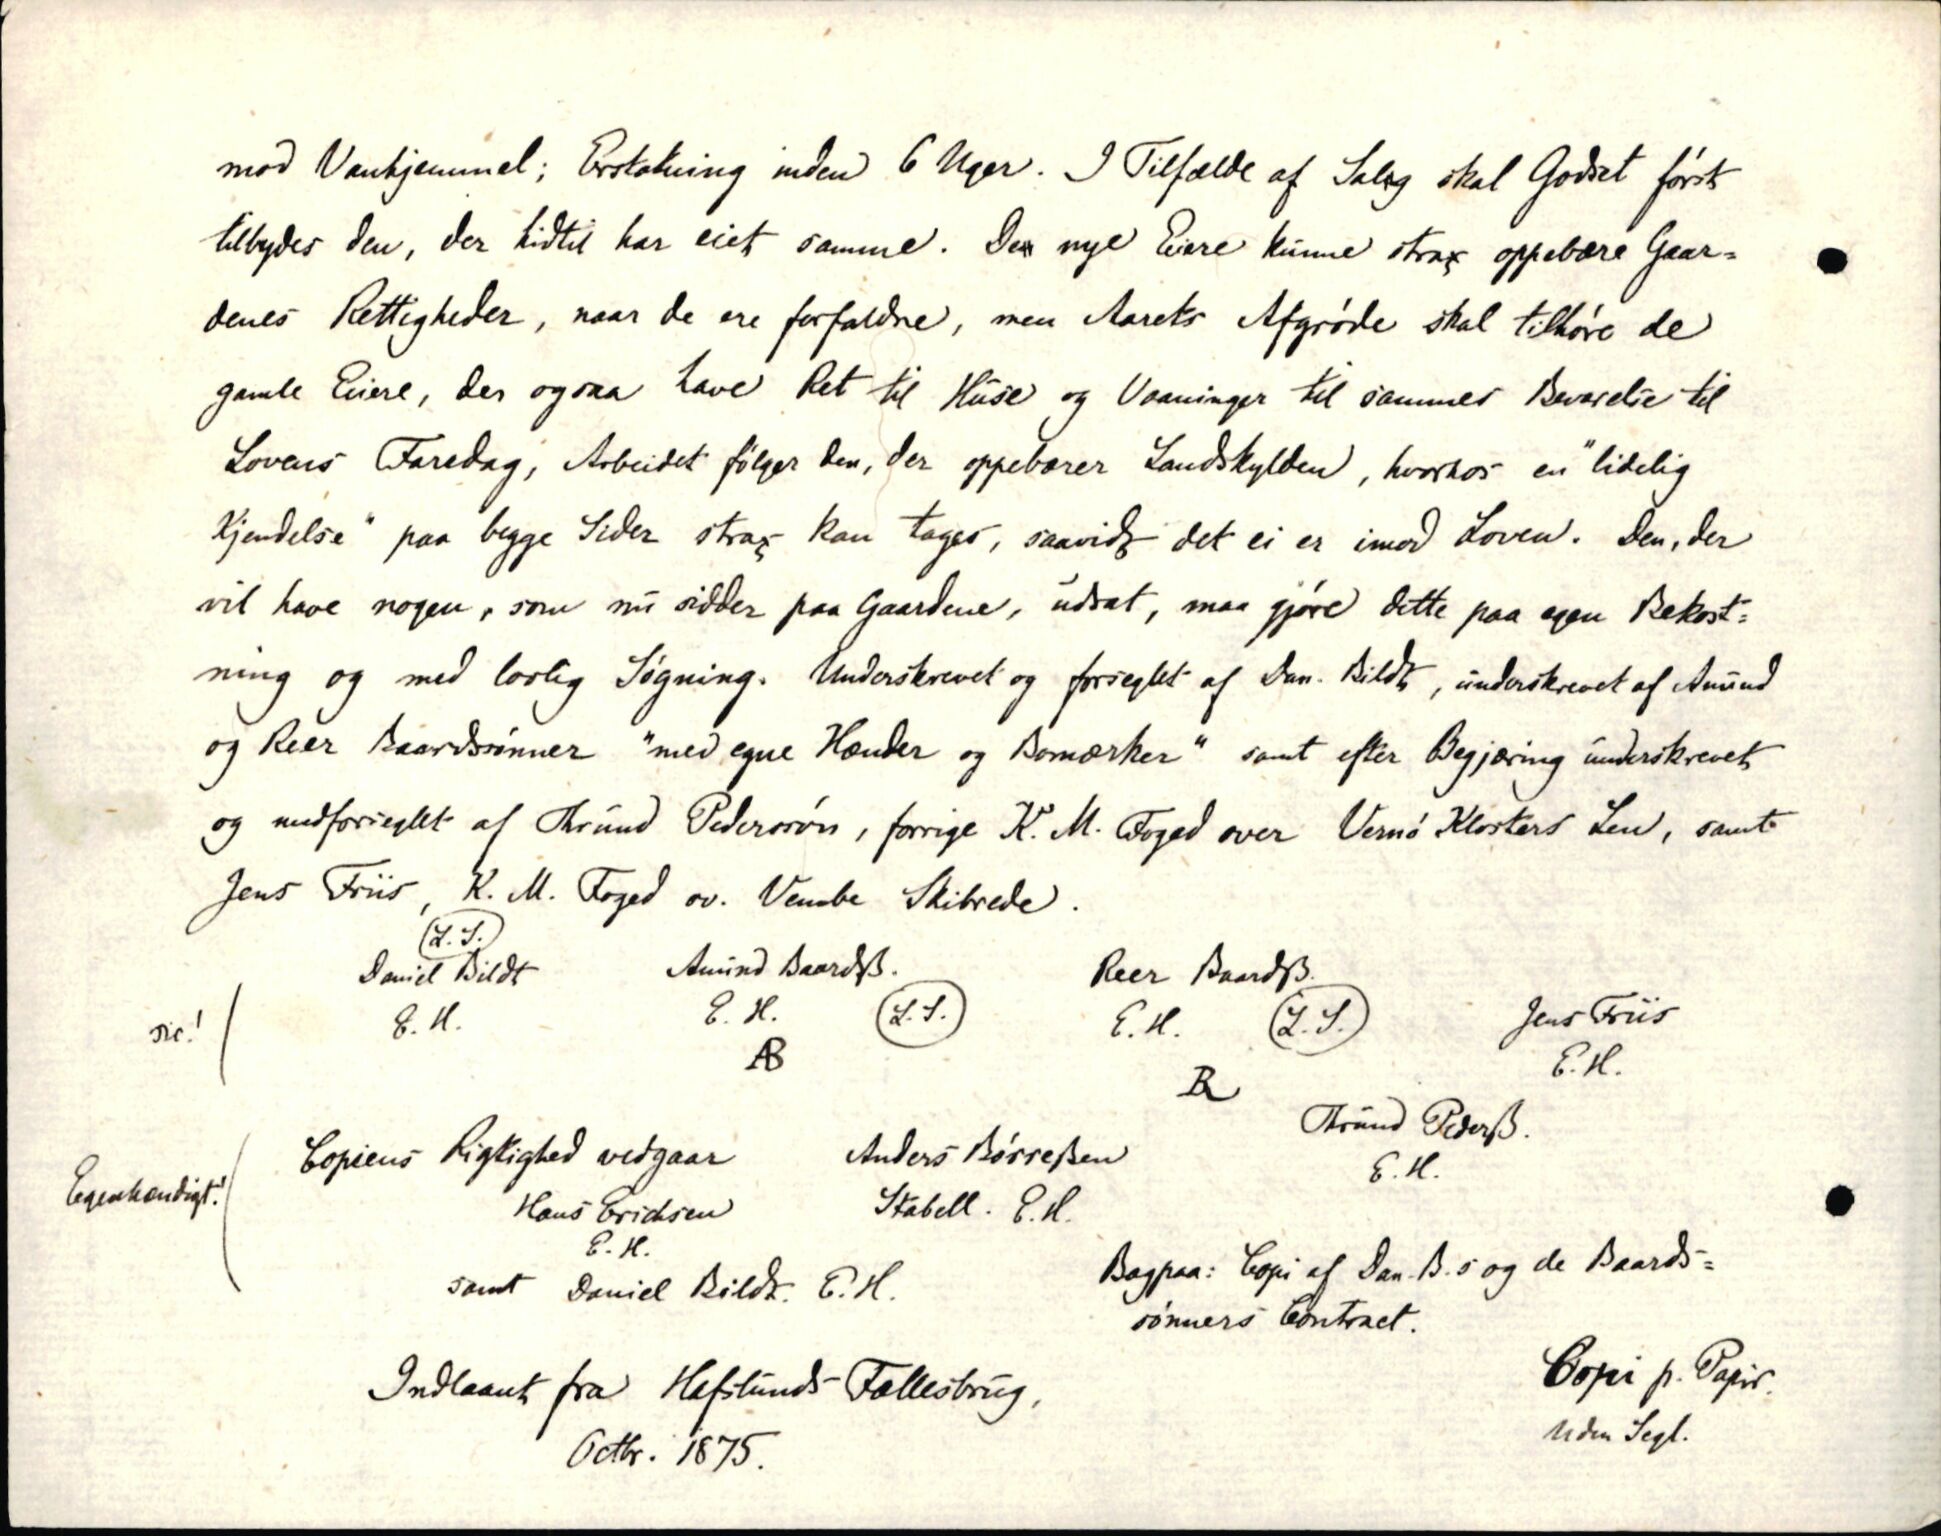 mod Vanhjemmel; Erstatning inden 6 Uger. I Tilfælde af Salg skal Godset först
tilbydes den, der hidtil har eiet samme. De nye Eiere kunne strax oppebære Gaar=
denes Rettigheder, naar de ere forfaldne, men Aarets Afgröde skal tilhöre de
gamle Eiere, der ogsaa have Ret til Huse og Vaaninger til sammes Bevarelse til
Lovens Faredag, Arbeidet fölger den, der oppebærer Landskylden, hvorhos en "lidelig
Kjendelse" paa begge Sider strax kan tages, saavidt det ei er imod Loven. Den, der
vil have nogen, som nu sidder paa Gaardene, udsat, maa gjöre dette paa egen Bekost=
ning og med lovlig Sögning. Underskrevet og forseglet af Dan. Bildt, underskrevet af Amund
og Reer Baardssönner "med egne Hænder og Bomærker" samt efter Begjæring underskrevet
og medforseglet af Thrund Pederssön, forrige K. M. Foged over Vernö Klosters Len, samt
Jens Friis, K. M. Foged ov. Vembe Skibrede.
(L.S.)
Daniel Bildt Amund Baardsß. Reer Baardsß.
sic! E. H. E. H. (L.S.) E. H. (L.S.) Jens Friis
AB E. H.
R
Thrund Pederß.
Copiens Rigtighed vedgaar Anders Börreßen E. H.
Egenhændigt! Hans Erichsen Stabell. E.H.
E. H.
samt Daniel Bildt. E. H.
Bagpaa: Copi af Dan. B.s og de Baards=
sönners Contract.
Indlaant fra Hafslunds Fællesbrug,
Octbr. 1875.
Copi p. Papir.
uden Segl.